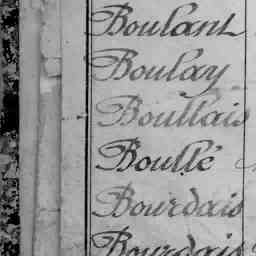 Boulant
Boulay
Boullais
Boullé
Bourdais
Bourdais